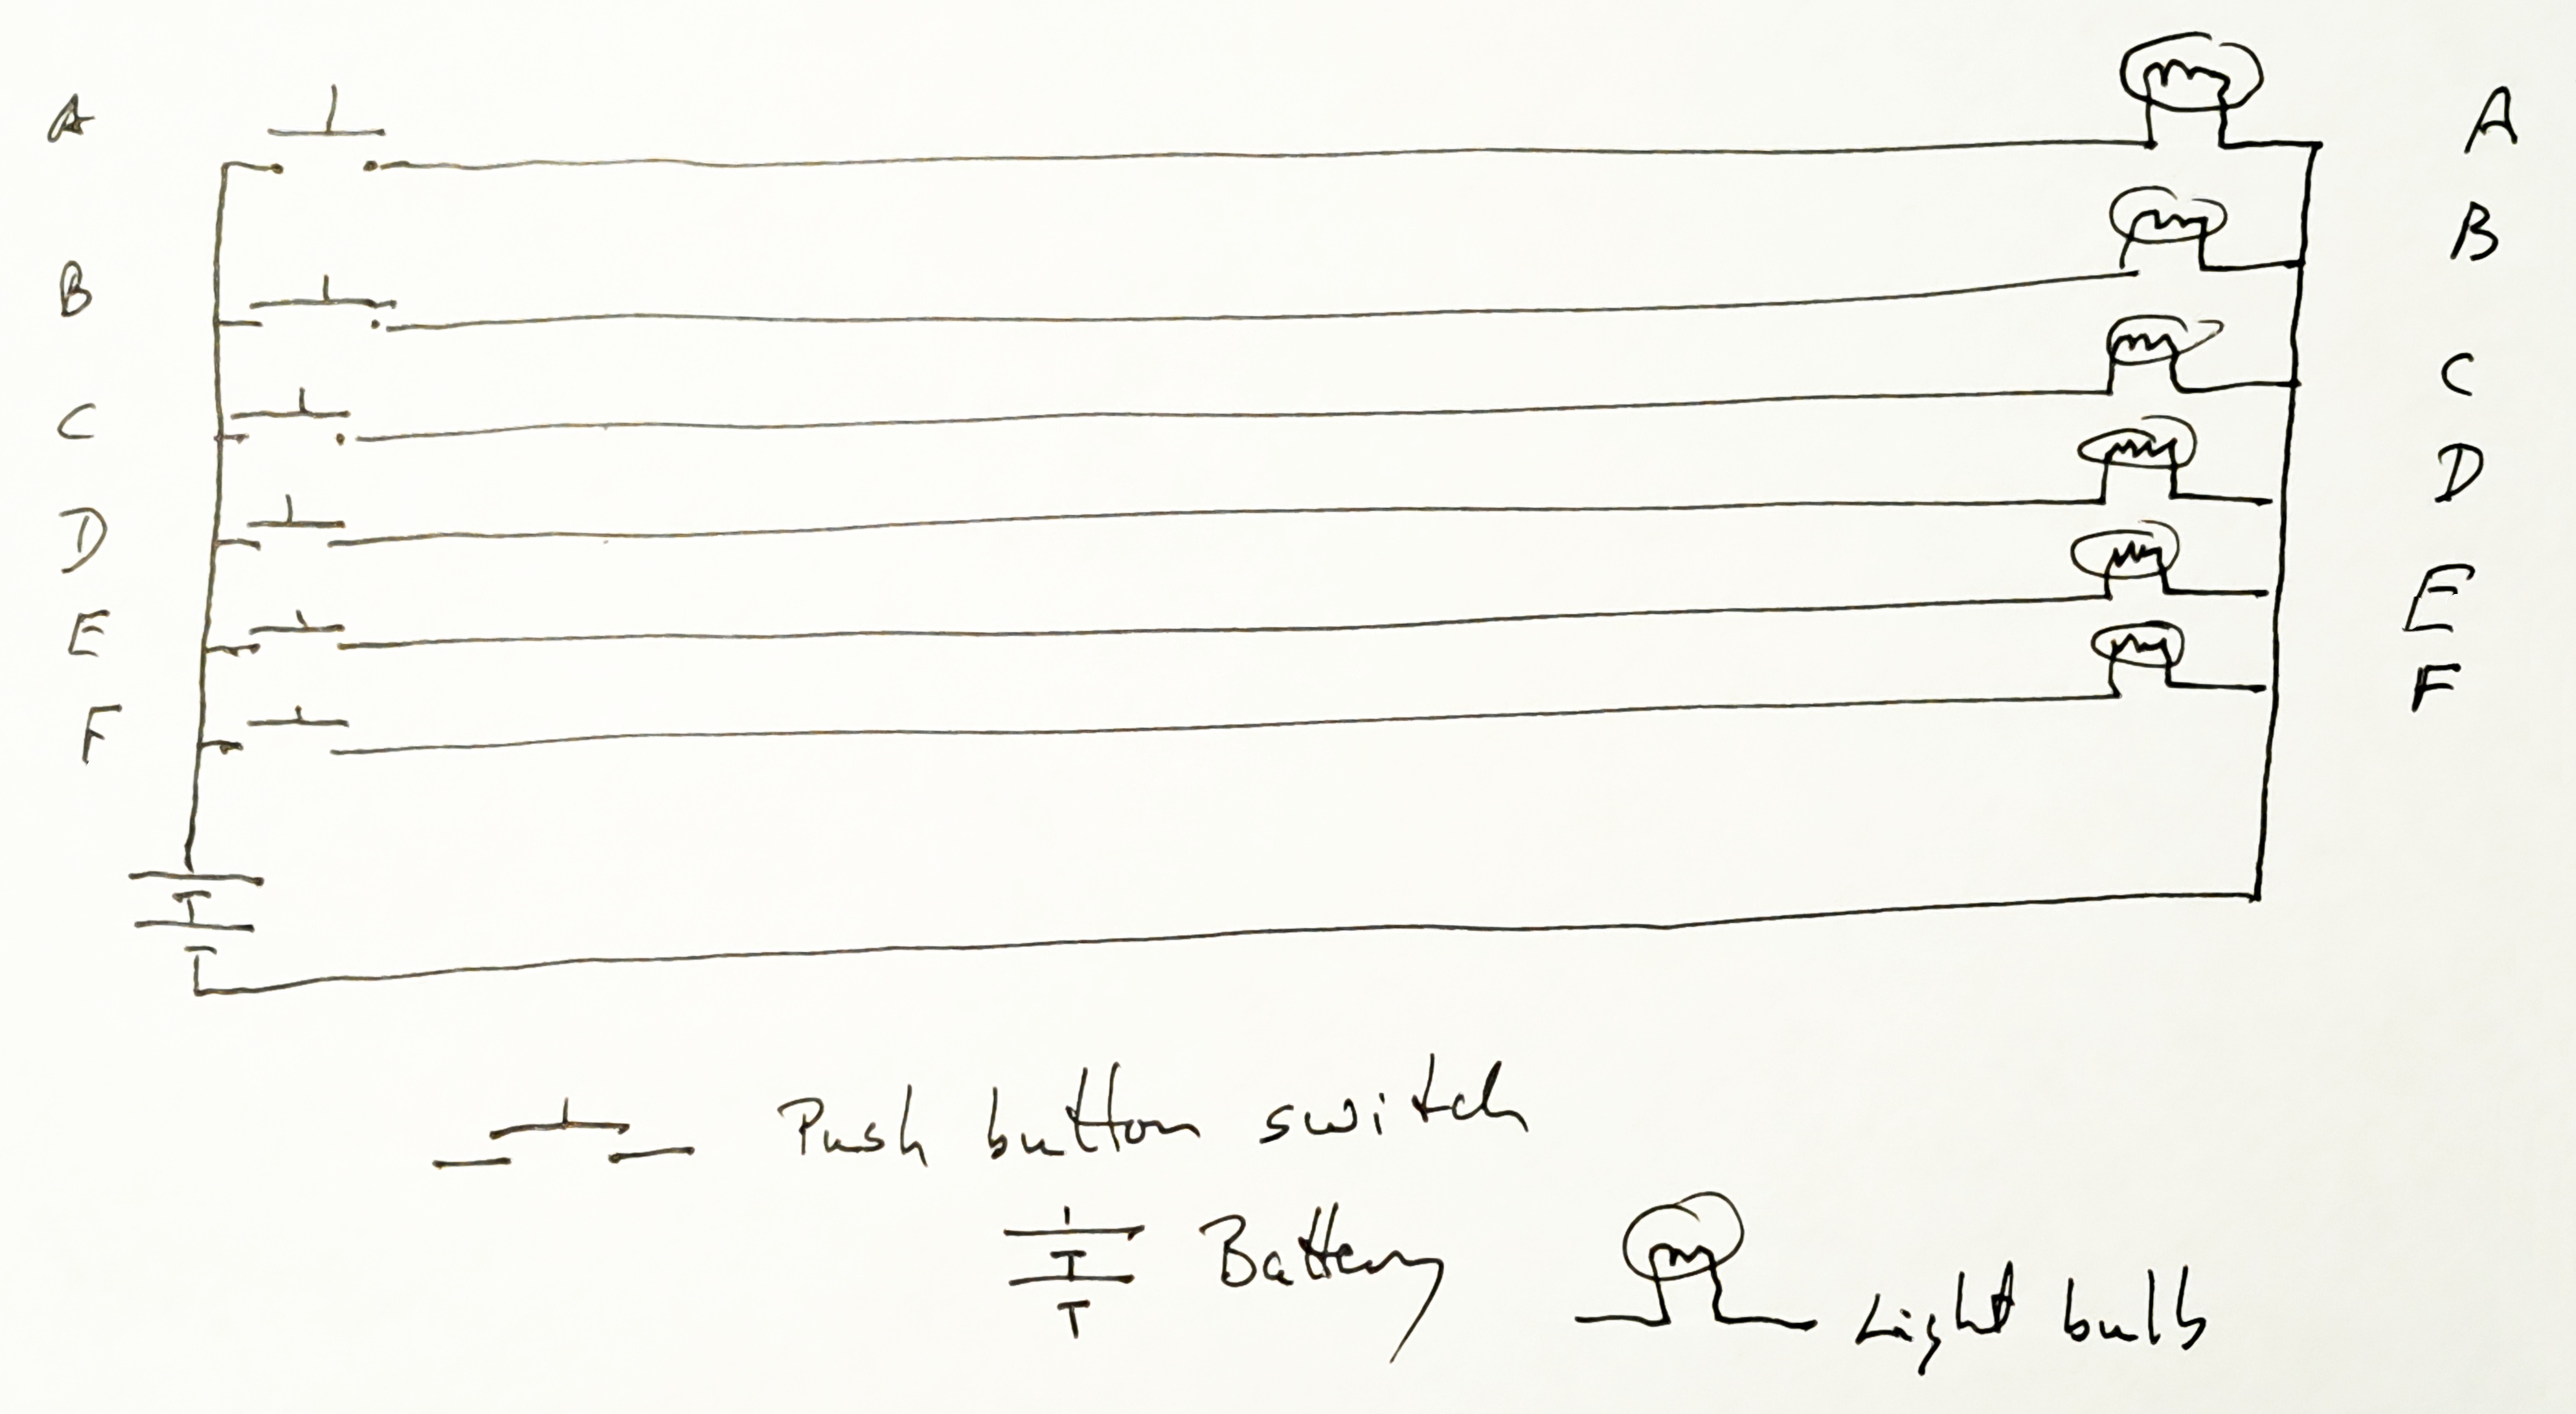 A A
B B
C C
D D
E E
F F
Push button switch
Battery
Light bulb